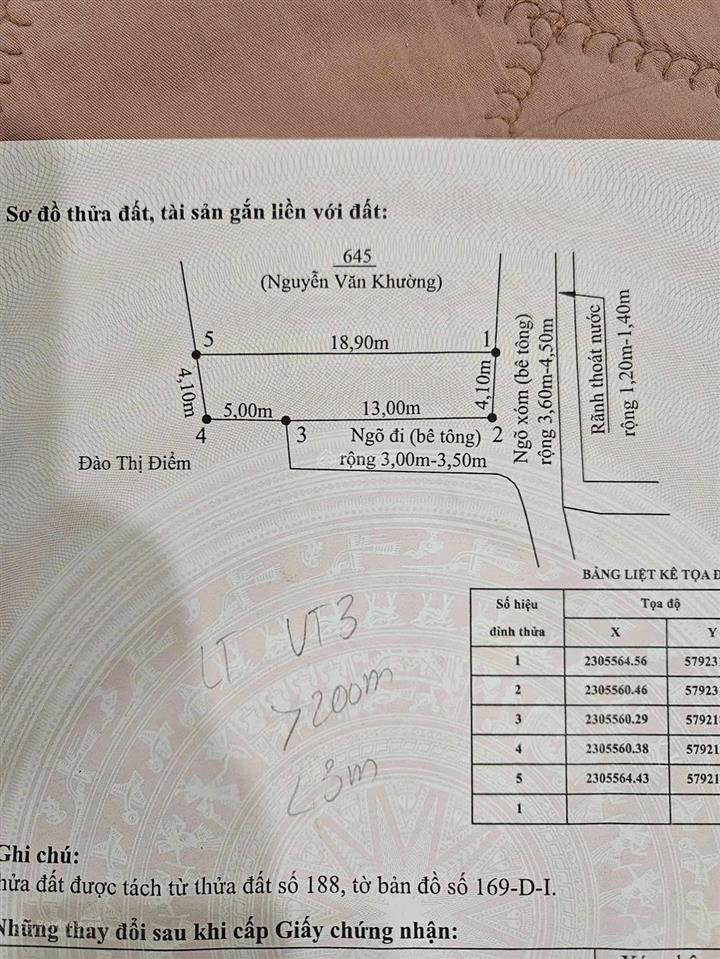 Sơ đồ thửa đất, tài sản gắn liền với đất:
645
(Nguyễn Văn Khường)
5
18,90m
1
4,10m
4,10m
5,00m
13,00m
4
3
Ngõ đi (bê tông)
2
rộng 3,00m-3,50m
Đào Thị Điểm
Ngõ xóm (bê tông)
rộng 3,60m-4,50m
Rãnh thoát nước
rộng 1,20m-1,40m
BẢNG LIỆT KÊ TỌA Đ
Số hiệu đỉnh thửa
Tọa độ
X Y
1 2305564.56 57923
2 2305560.46 57923
3 2305560.29 57921
4 2305560.38 57921
5 2305564.43 57921
1
LT VT3
>200m
<3m
Ghi chú:
hửa đất được tách từ thửa đất số 188, tờ bản đồ số 169-D-I.
Những thay đổi sau khi cấp Giấy chứng nhận: